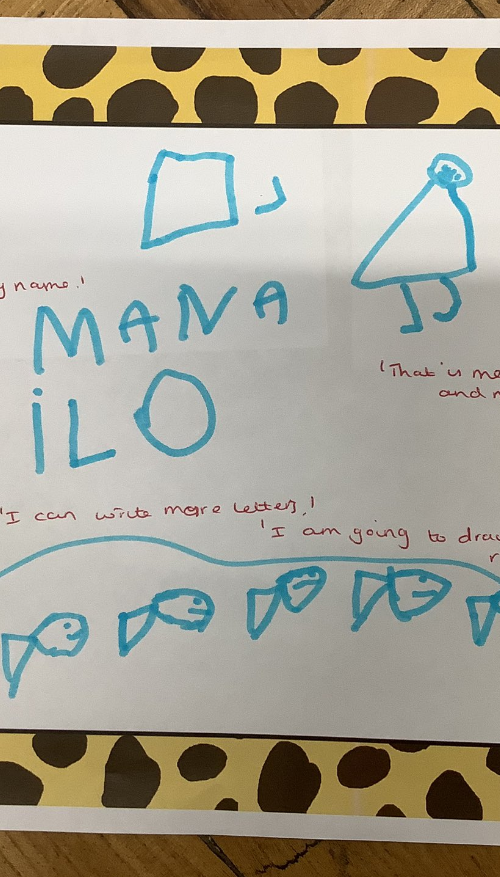 name.'
MANA
iLO
'That is me
and
'I can write more letters.'
'I am going to draw